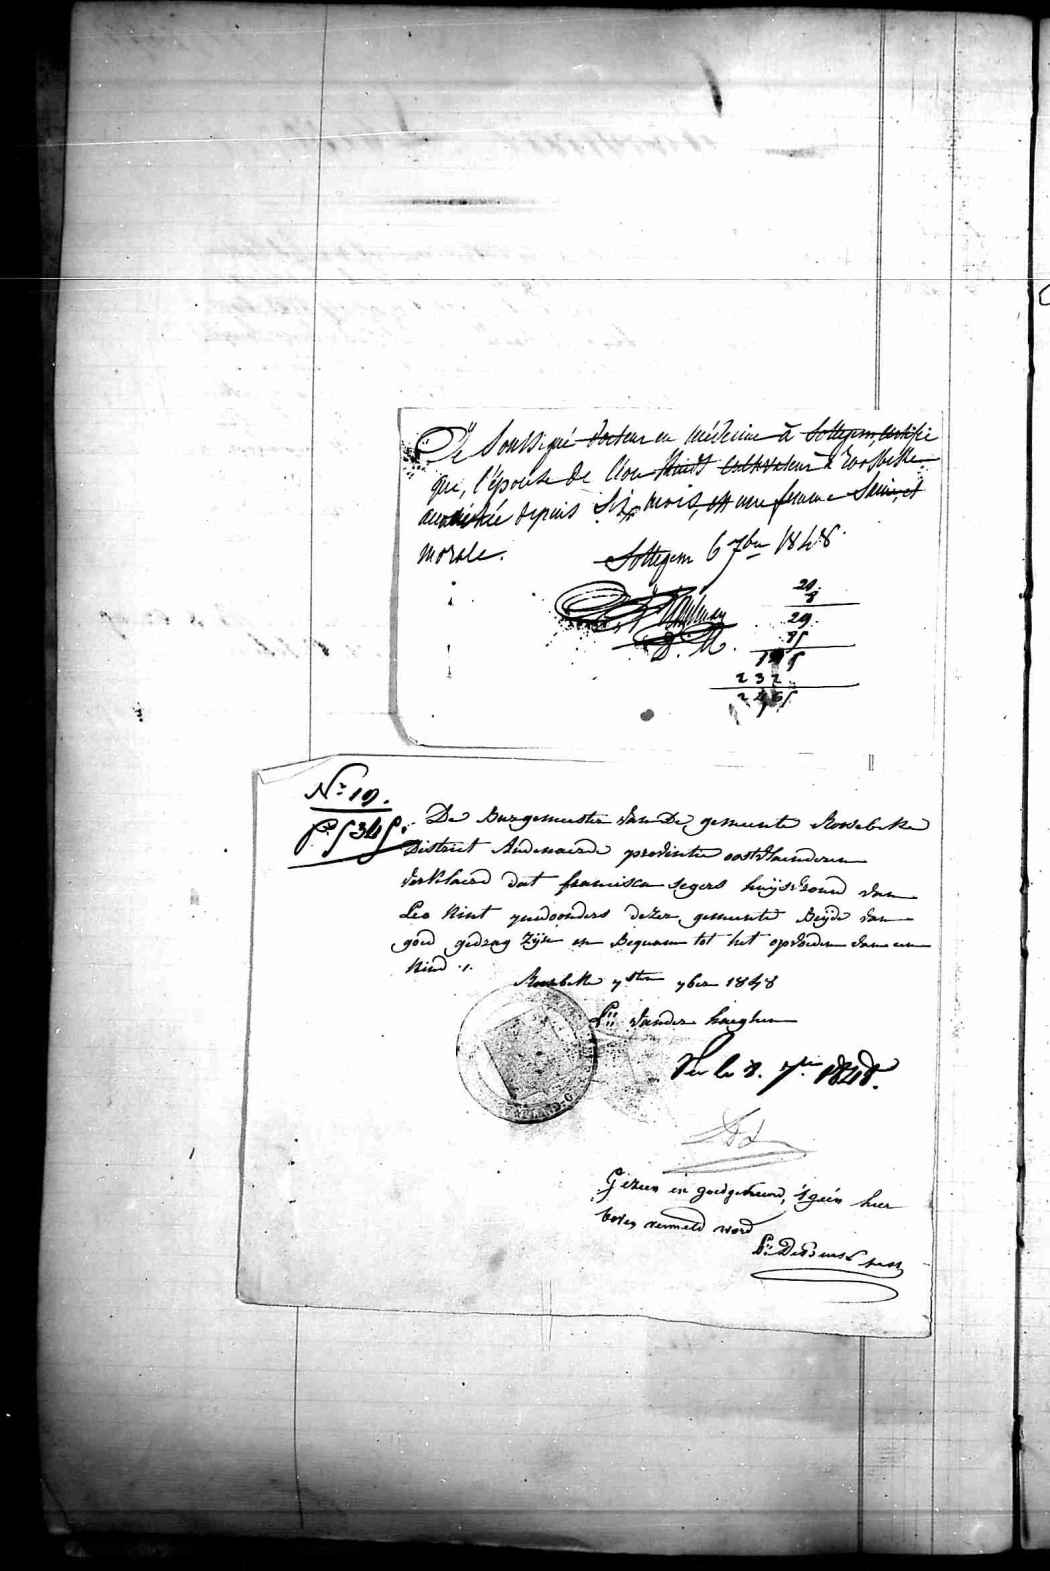 Je Soussigné docteur en médecine à Sottegem, certifie
que, l'épouse de Léon Kindt cultivateur à Roosbeke
accouchée depuis Six mois, est une femme Saine, et
morale.
Sottegem 6 7bre 1848.
D. M.
20.
8
29
85
232
Nr 19.
De Burgemeester van De gemeente Roosebeke
District Audenaerde provintie oostvlaenderen
verklaerd dat francisca segers huijsvrouw van
Leo Kint gewoonders dezer gemeente Beijde van
goed gedrag Zijn en Bequam tot het opvoeden van een
Kind ./.
Roosbeke 7sten 7ber 1848
vander haeghen
Vu le 8. 7bre 1848.
Gezien en goedgekeurd, 'tgeén hier
boven vermeld word